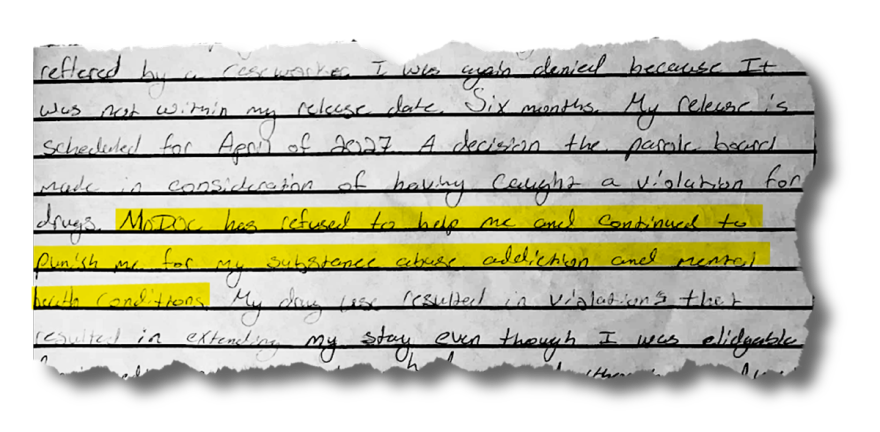 reffered by a caseworker. I was again denied because It
was not within my release date. Six months. My release is
scheduled for April of 2027. A decision the parole board
made in consideration of having caught a violation for
drugs. MoDOC has refused to help me and continued to
punish me for my substance abuse addiction and mental
health conditions. My drug use resulted in violations that
resulted in extending my stay even though I was elidgeable